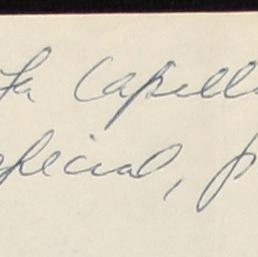 La Capell
pecial, p